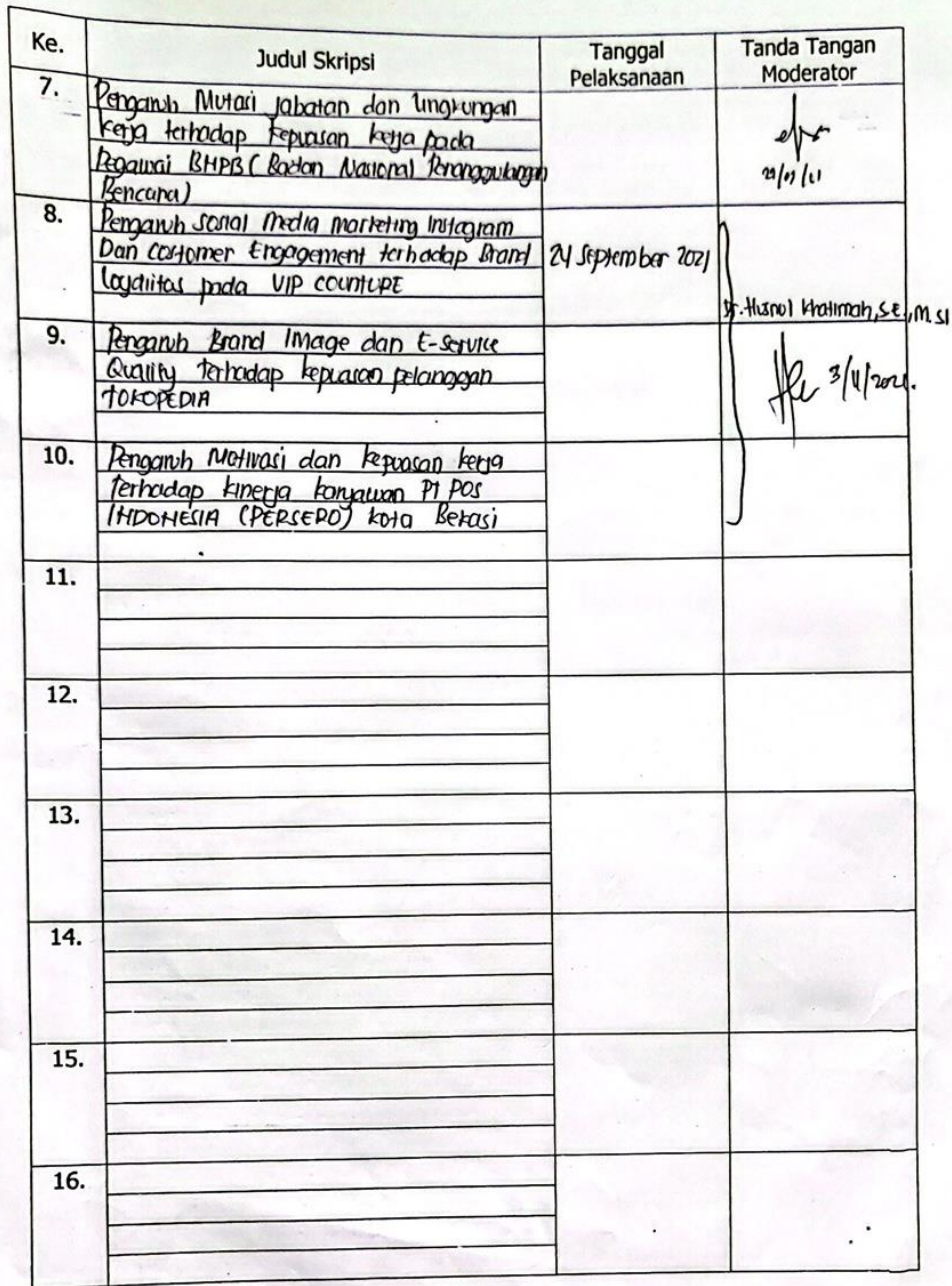 Ke.
Judul Skripsi
Tanggal
Pelaksanaan
Tanda Tangan
Moderator
7.
Pengaruh Mutasi Jabatan dan lingkungan
kerja terhadap kepuasan kerja pada
Pegawai BNPB (Badan Nasional Penanggulangan
Bencana)
8.
Pengaruh sosial media marketing Instagram
Dan Costomer Engagement terhadap Brand
Loyalitas pada VIP
24 September 2021
Dr. Husnul Khatimah, S.E., M.SI
9.
Pengaruh Brand Image dan E-Service
Quality terhadap kepuasan pelanggan
TOKOPEDIA
10.
Pengaruh Motivasi dan kepuasan kerja
terhadap kinerja karyawan PT POS
INDONESIA (PERSERO) kota Bekasi
11.
12.
13.
14.
15.
16.